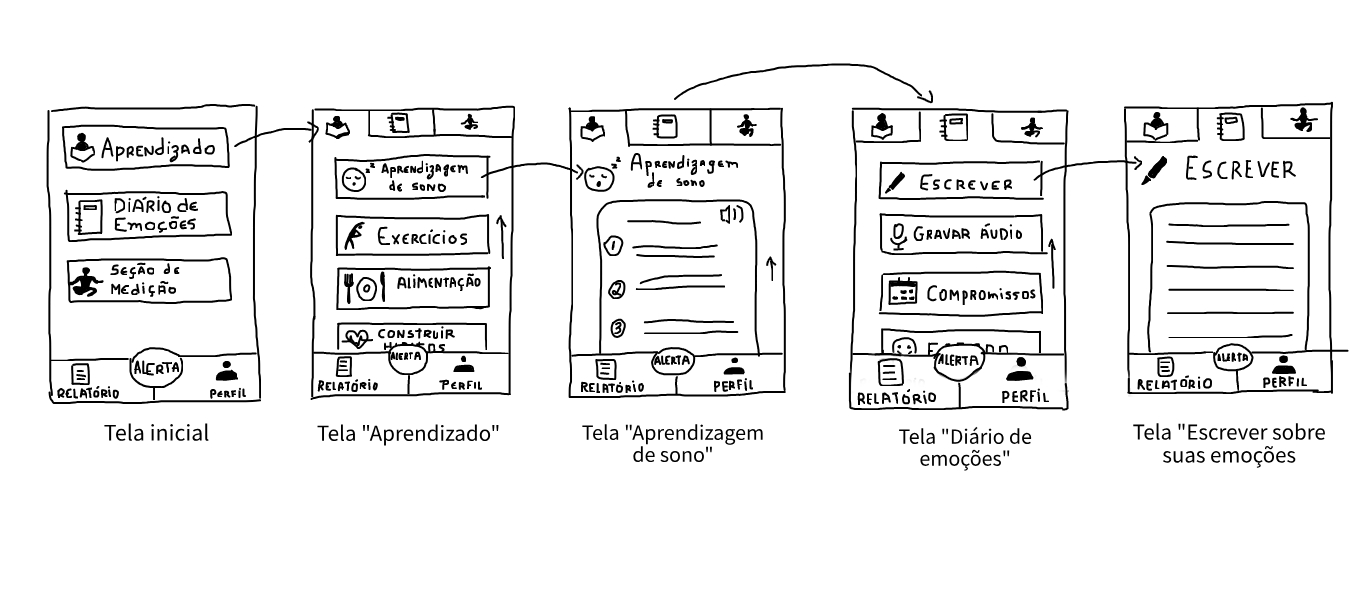 APRENDIZADO
DIÁRIO DE
EMOÇÕES
SEÇÃO DE
MEDIÇÃO
ALERTA
RELATÓRIO
PERFIL
Tela inicial
APRENDIZAGEM
DE SONO
EXERCÍCIOS
ALIMENTAÇÃO
CONSTRUIR
ALERTA
RELATÓRIO
PERFIL
Tela "Aprendizado"
APRENDIZAGEM
DE SONO
1
2
3
ALERTA
RELATÓRIO
PERFIL
Tela "Aprendizagem
de sono"
ESCREVER
GRAVAR ÁUDIO
COMPROMISSOS
ALERTA
RELATÓRIO
PERFIL
Tela "Diário de
emoções"
ESCREVER
ALERTA
RELATÓRIO
PERFIL
Tela "Escrever sobre
suas emoções